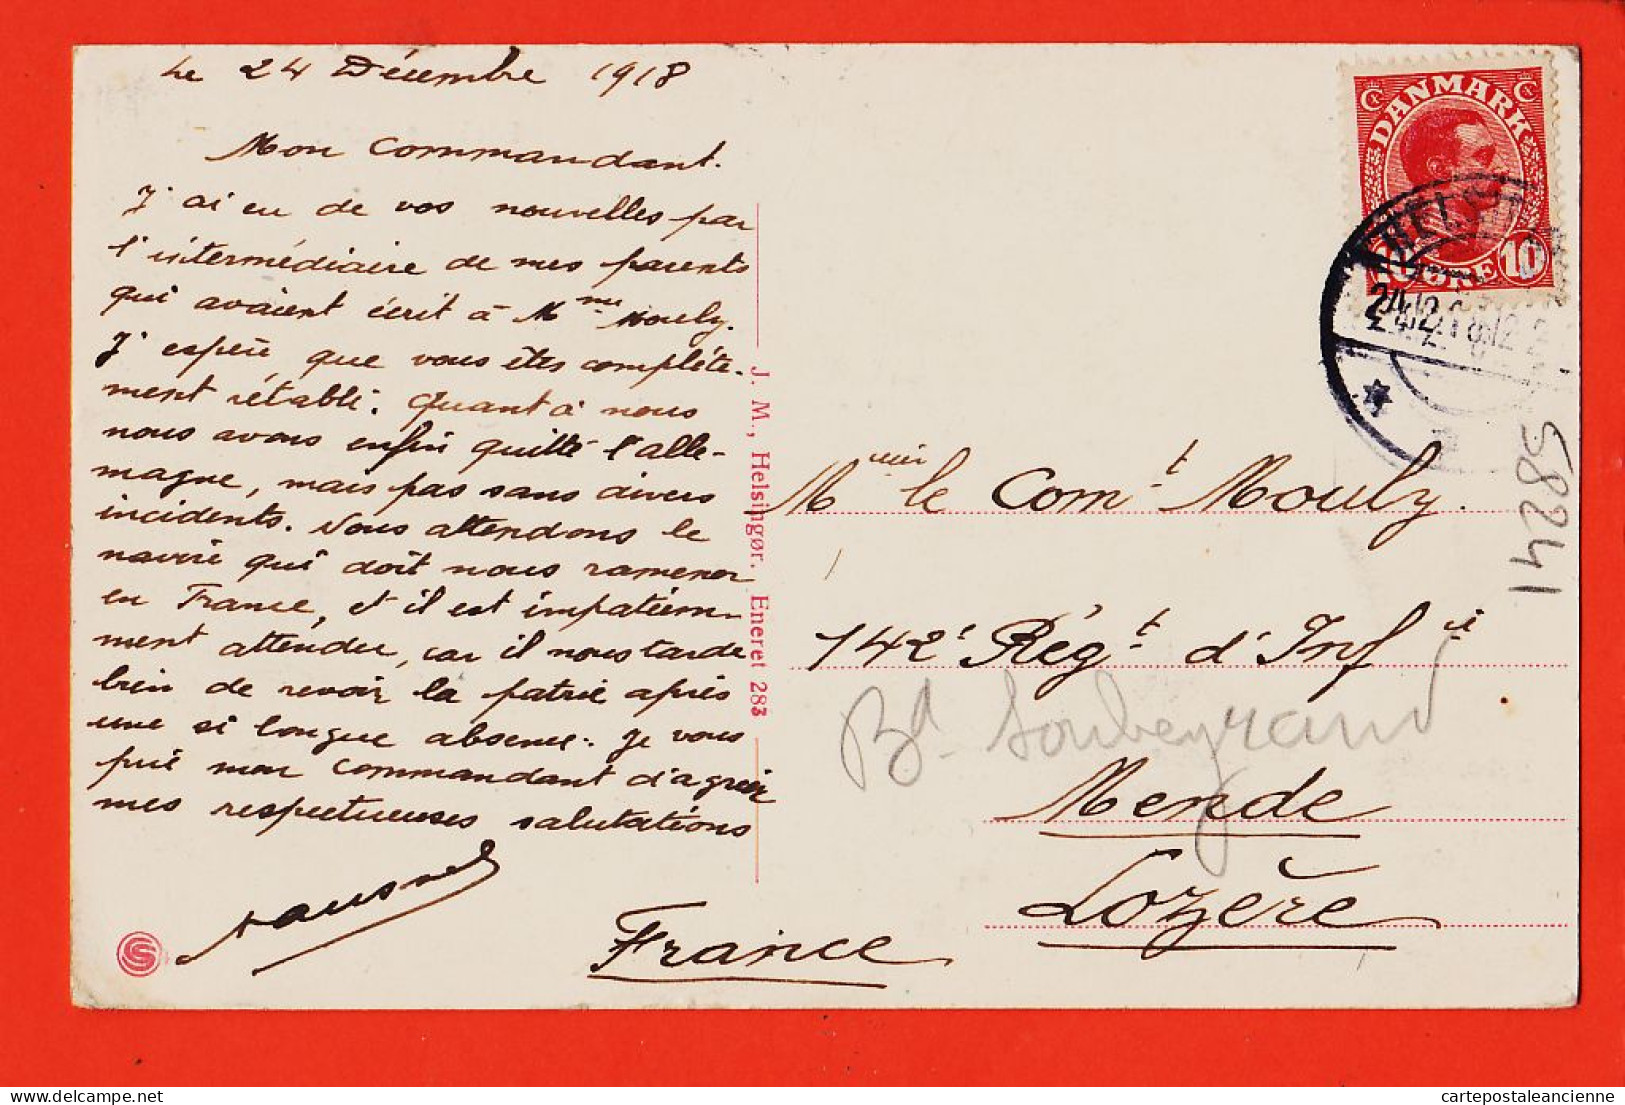 Le 24 Décembre 1918
Mon Commandant.
J'ai eu de vos nouvelles par
l'intermédiaire de mes parents
qui avaient écrit à Mme Mouly.
J'espère que vous êtes complète-
ment rétabli. Quant à nous
nous avons enfin quitté l'alle-
magne, mais pas sans divers
incidents. Nous attendons le
navire qui doit nous ramener
en France, et il est impatiem-
ment attendu, car il nous tarde
bien de revoir la patrie après
une si longue absence. Je vous
prie mon commandant d'agréer
mes respectueuses salutations
J. M., Helsingør. Eneret 283
DANMARK
10 ØRE 10
HELSI
24.12.18.12
58241
Msieur le Comt Mouly.
142e Régt d'Infie
Bd Soubeyrand
Mende
Lozère
France
delcampe.net
cartepostaleancienne